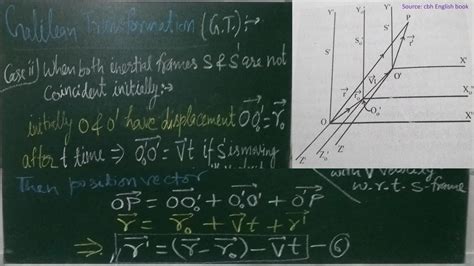 Galilean Transformation (G.T.) :-
Case ii) When both inertial frames S & S' are not
Coincident initially :-
initially O & O' have displacement OO₀' = r₀
after t time ⇒ O₀'O' = Vt if S' is moving
with Velocity
w.r.t. S-frame
Then position vector
OP = OO₀' + O₀'O' + O'P
r = r₀ + Vt + r'
⇒ r' = (r - r₀) - Vt - ⑥
Source: cbh English book
P
S'
S₀'
S
r
r'
Vt
O'
X'
O₀'
O
X
Z
Z₀'
Z'